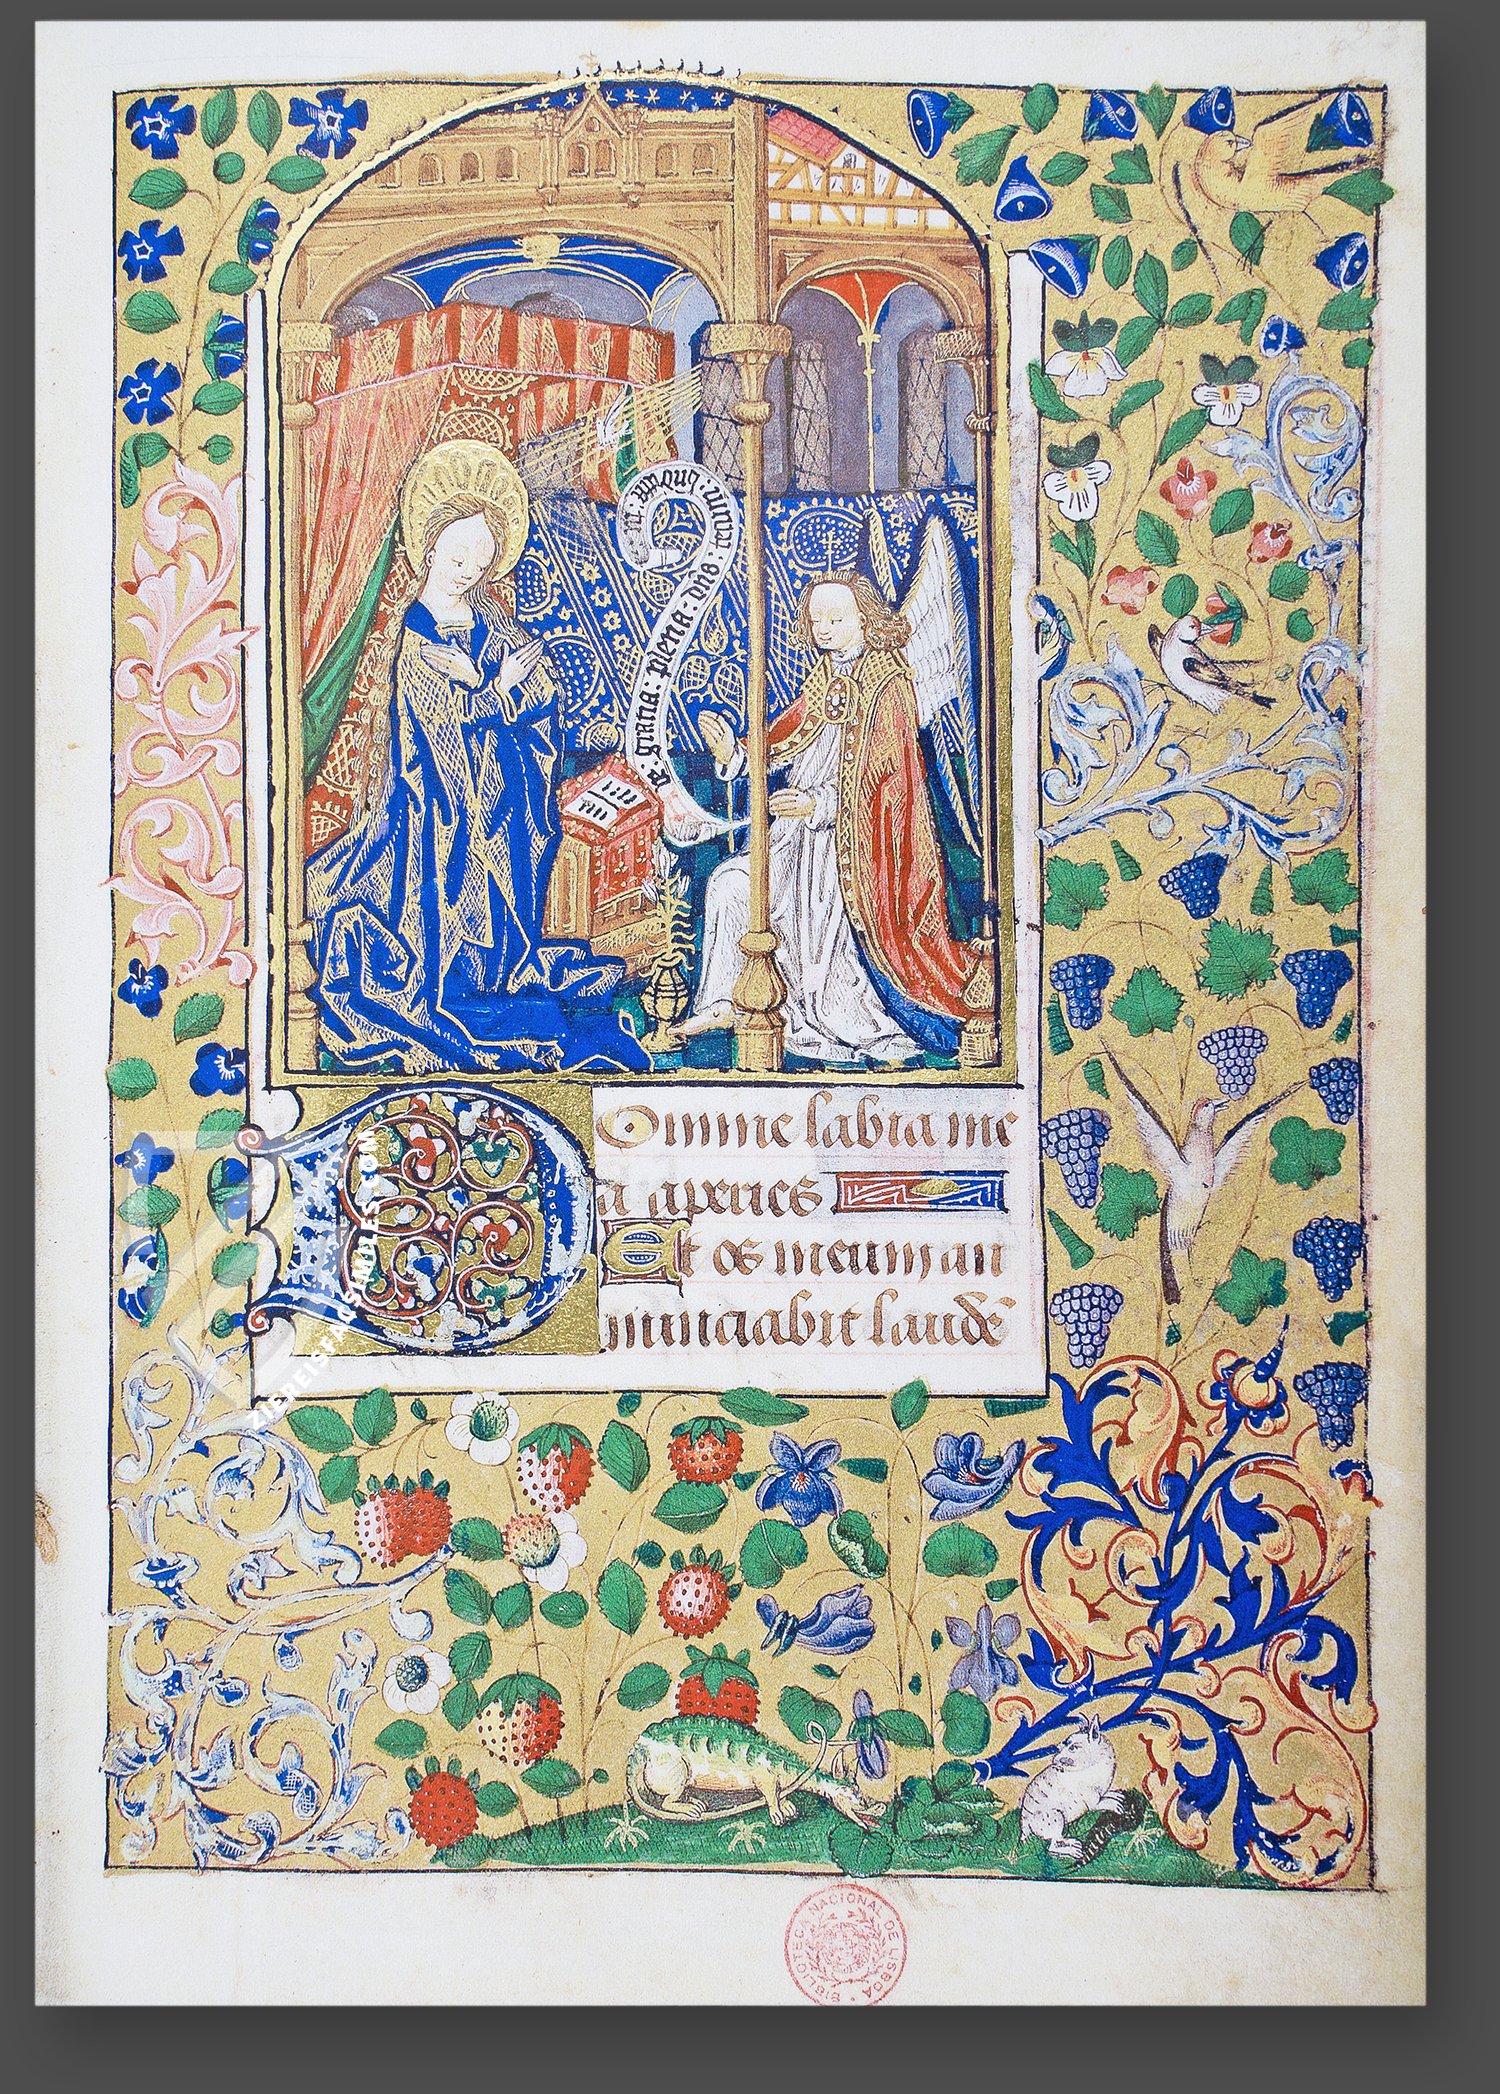 gratia · plena · dns · tecum ·
Domine labia me
a aperies
Et os meum an
nunciabit laudē
BIBLIOTECA NACIONAL DE LISBOA
ZIEREIS FACSIMILES.COM